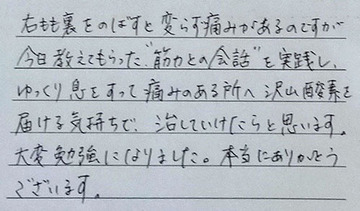 右もも裏をのばすと変らず痛みがあるのですが
今日教えてもらった"筋力との会話"を実践し、
ゆっくり息をすって痛みのある所へ沢山酸素を
届ける気持ちで、治していけたらと思います。
大変勉強になりました。本当にありがとう
ございます。